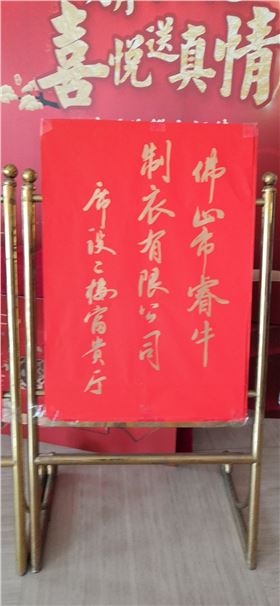 喜悦送真情
佛山市睿牛
制衣有限公司
席设二楼富贵厅